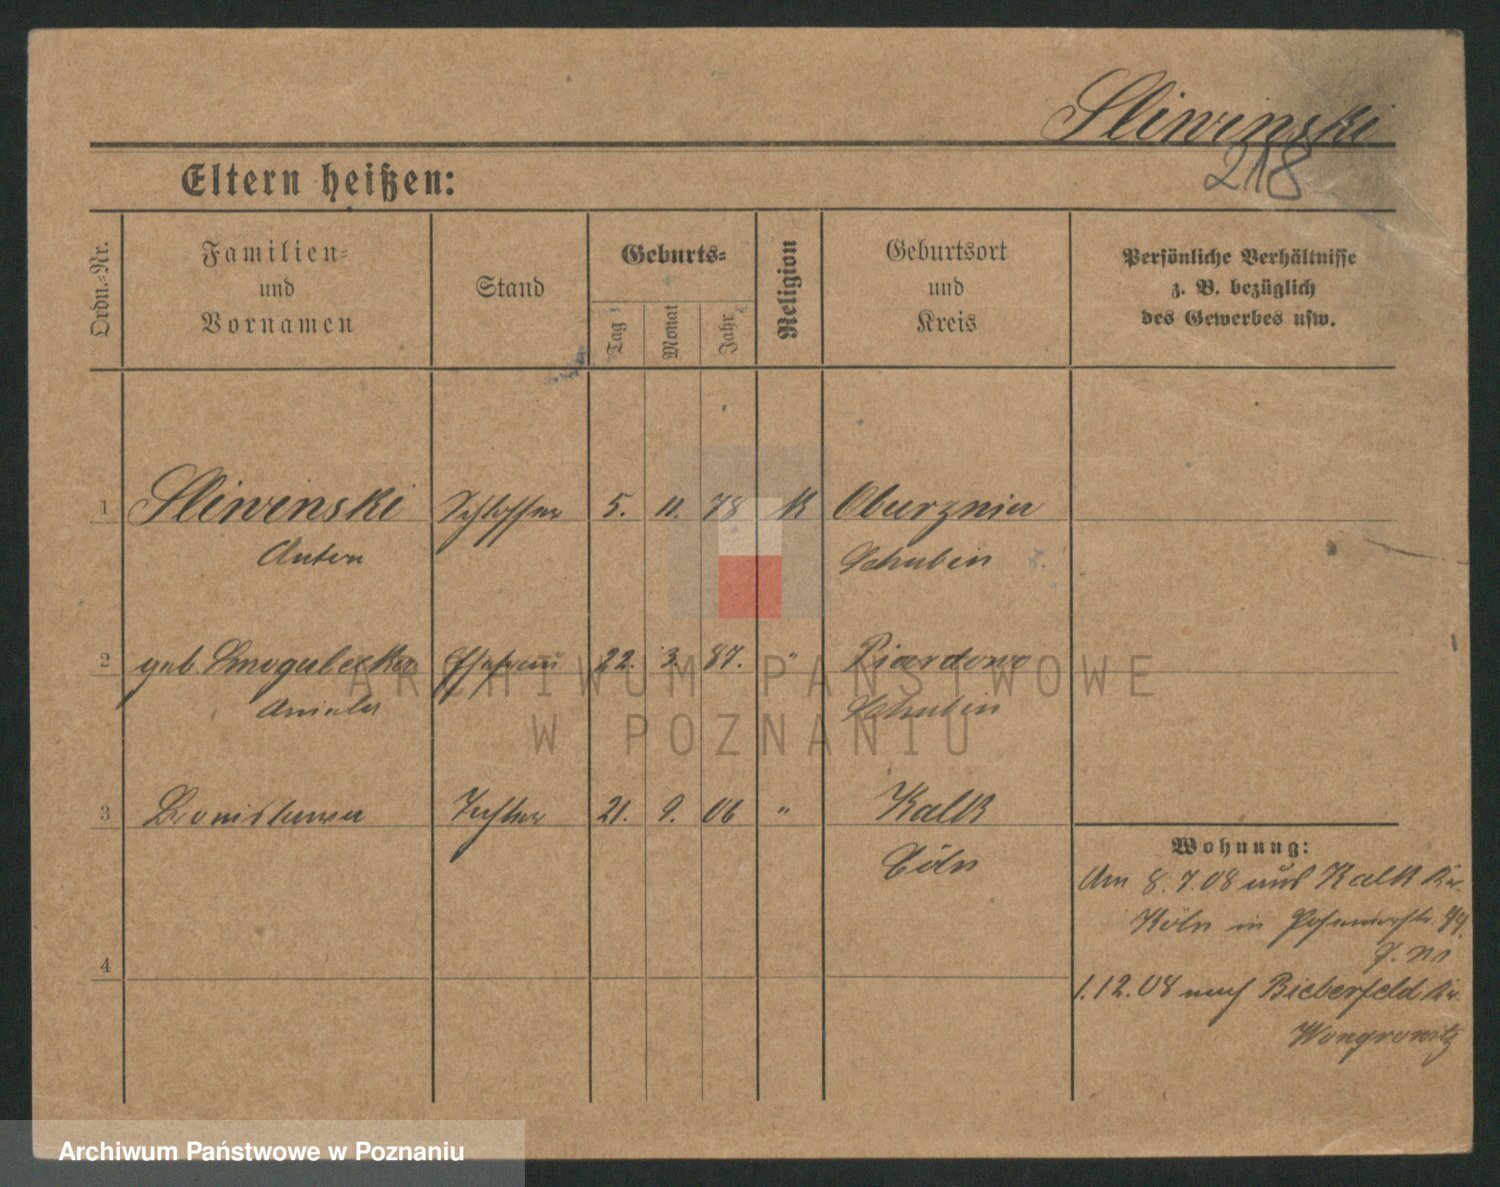 Sliwinski
218
Eltern heißen:
Ordn.-Nr.
Familien-
und
Vornamen
Stand
Geburts-
Tag
Monat
Jahr
Religion
Geburtsort
und
Kreis
Persönliche Verhältnisse
z. B. bezüglich
des Gewerbes usw.
1 Sliwinski Schlosser 5. 11. 78 K
Anton Schubin
2 geb. Smogulecka Ehefrau 22. 3. 87. "
Aniela Schubin
3 Bronislawa Tochter 21. 9. 06 " Kalk
Cöln
4
Wohnung:
Am 8.7.08 aus Kalk Kr.
Köln in Posenerstr.
1.12.08 nach Bieberfeld Kr.
Wongrowitz
ARCHIWUM PAŃSTWOWE
W POZNANIU
Archiwum Państwowe w Poznaniu